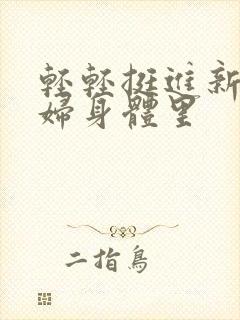 輕輕挺進新
婦身體里
二指鳥